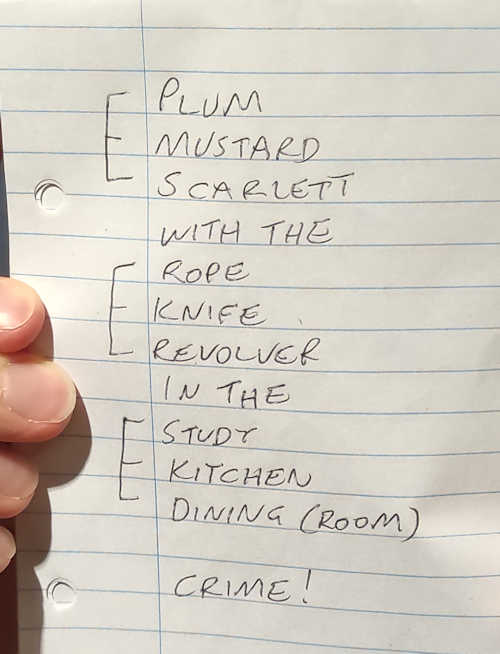 PLUM
MUSTARD
SCARLETT
WITH THE
ROPE
KNIFE
REVOLVER
IN THE
STUDY
KITCHEN
DINING (ROOM)
CRIME!